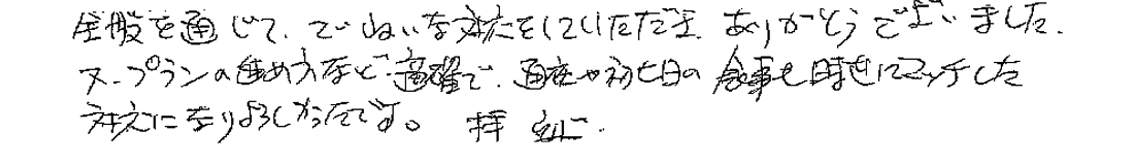 全般を通じて、ていねいな対応をしていただき、ありがとうございました。
又、プランの進め方など適確で、通夜や初七日の食事も時世にマッチした
対応になりよろしかったです。 拝